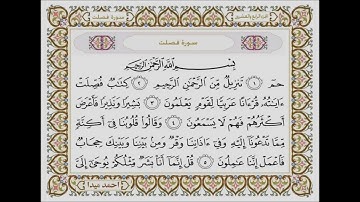 سورة فصلت
الجزء الرابع والعشرون
سورة فصلت
بِسْمِ اللَّهِ الرَّحْمَٰنِ الرَّحِيمِ
حمٓ ١ تَنزِيلٌ مِّنَ الرَّحْمَٰنِ الرَّحِيمِ ٢ كِتَابٌ فُصِّلَتْ
ءَايَاتُهُۥ قُرْءَانًا عَرَبِيًّا لِّقَوْمٍ يَعْلَمُونَ ٣ بَشِيرًا وَنَذِيرًا فَأَعْرَضَ
أَكْثَرُهُمْ فَهُمْ لَا يَسْمَعُونَ ٤ وَقَالُوا۟ قُلُوبُنَا فِىٓ أَكِنَّةٍ
مِّمَّا تَدْعُونَآ إِلَيْهِ وَفِىٓ ءَاذَانِنَا وَقْرٌ وَمِنۢ بَيْنِنَا وَبَيْنِكَ حِجَابٌ
فَٱعْمَلْ إِنَّنَا عَٰمِلُونَ ٥ قُلْ إِنَّمَآ أَنَا۠ بَشَرٌ مِّثْلُكُمْ يُوحَىٰٓ إِلَىَّ